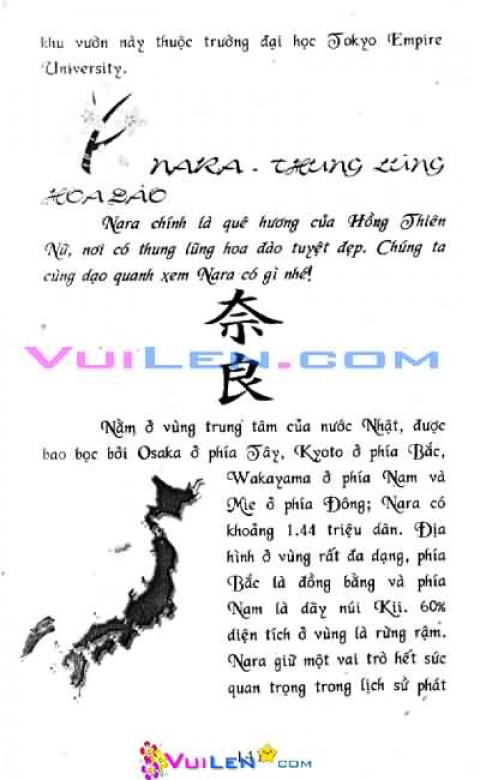 khu vườn này thuộc trường đại học Tokyo Empire
University.
NARA - THUNG LŨNG
HOA ĐÀO
Nara chính là quê hương của Hồng Thiên
Nữ, nơi có thung lũng hoa đào tuyệt đẹp. Chúng ta
cùng dạo quanh xem Nara có gì nhé!
奈
VUILEN.COM
良
Nằm ở vùng trung tâm của nước Nhật, được
bao bọc bởi Osaka ở phía Tây, Kyoto ở phía Bắc,
Wakayama ở phía Nam và
Mie ở phía Đông; Nara có
khoảng 1.44 triệu dân. Địa
hình ở vùng rất đa dạng, phía
Bắc là đồng bằng và phía
Nam là dãy núi Kii. 60%
diện tích ở vùng là rừng rậm.
Nara giữ một vai trò hết sức
quan trọng trong lịch sử phát
VUILEN.COM